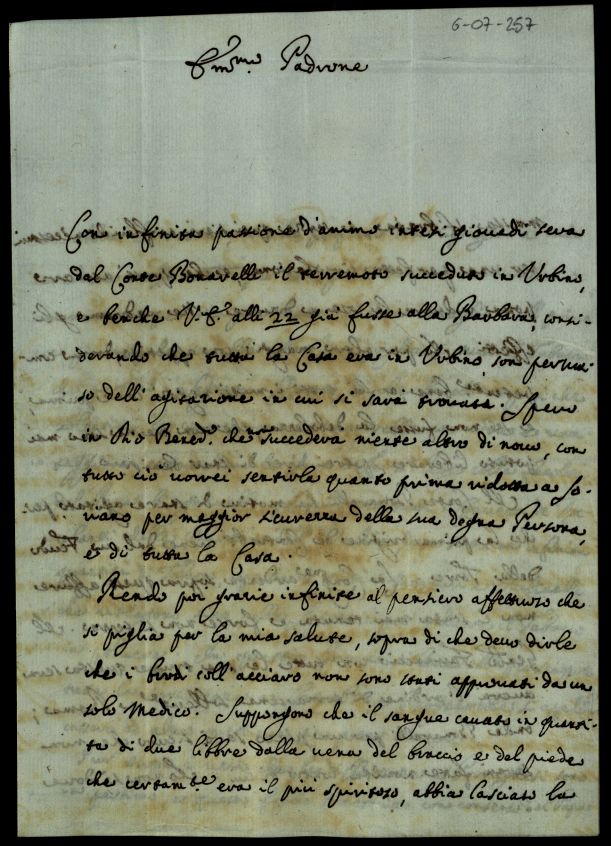 6-07-257
Em.mo Padrone
Con infinita passione d'animo intesi giovedì sera
dal Conte Bonarelli il terremoto succeduto in Urbino,
e benche V.E. alli 22 già fusse alla Barbara, consi-
derando che tutta la Casa era in Urbino, son persua-
so dell'agitazione in cui si sarà trovata. Spero
in Dio Bened.o che non succederà niente altro di novo, con
tutto ciò vorrei sentirla quanto prima ridotta a So-
riano per maggior sicurezza della sua degna Persona,
e di tutta la Casa.
Rendo poi grazie infinite al pensiero affettuoso che
si piglia per la mia salute, sopra di che devo dirle
che i brodi coll'acciaro non sono stati approvati da un
solo Medico. Suppongono che il sangue cavato in quanti-
tà di due libbre dalla vena del braccio e del piede
che certam.te era il più spiritoso, abbia lasciato la